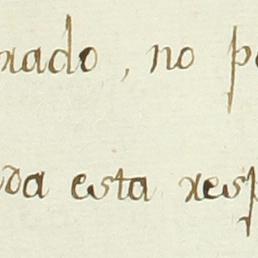 rado, no p
da esta resp